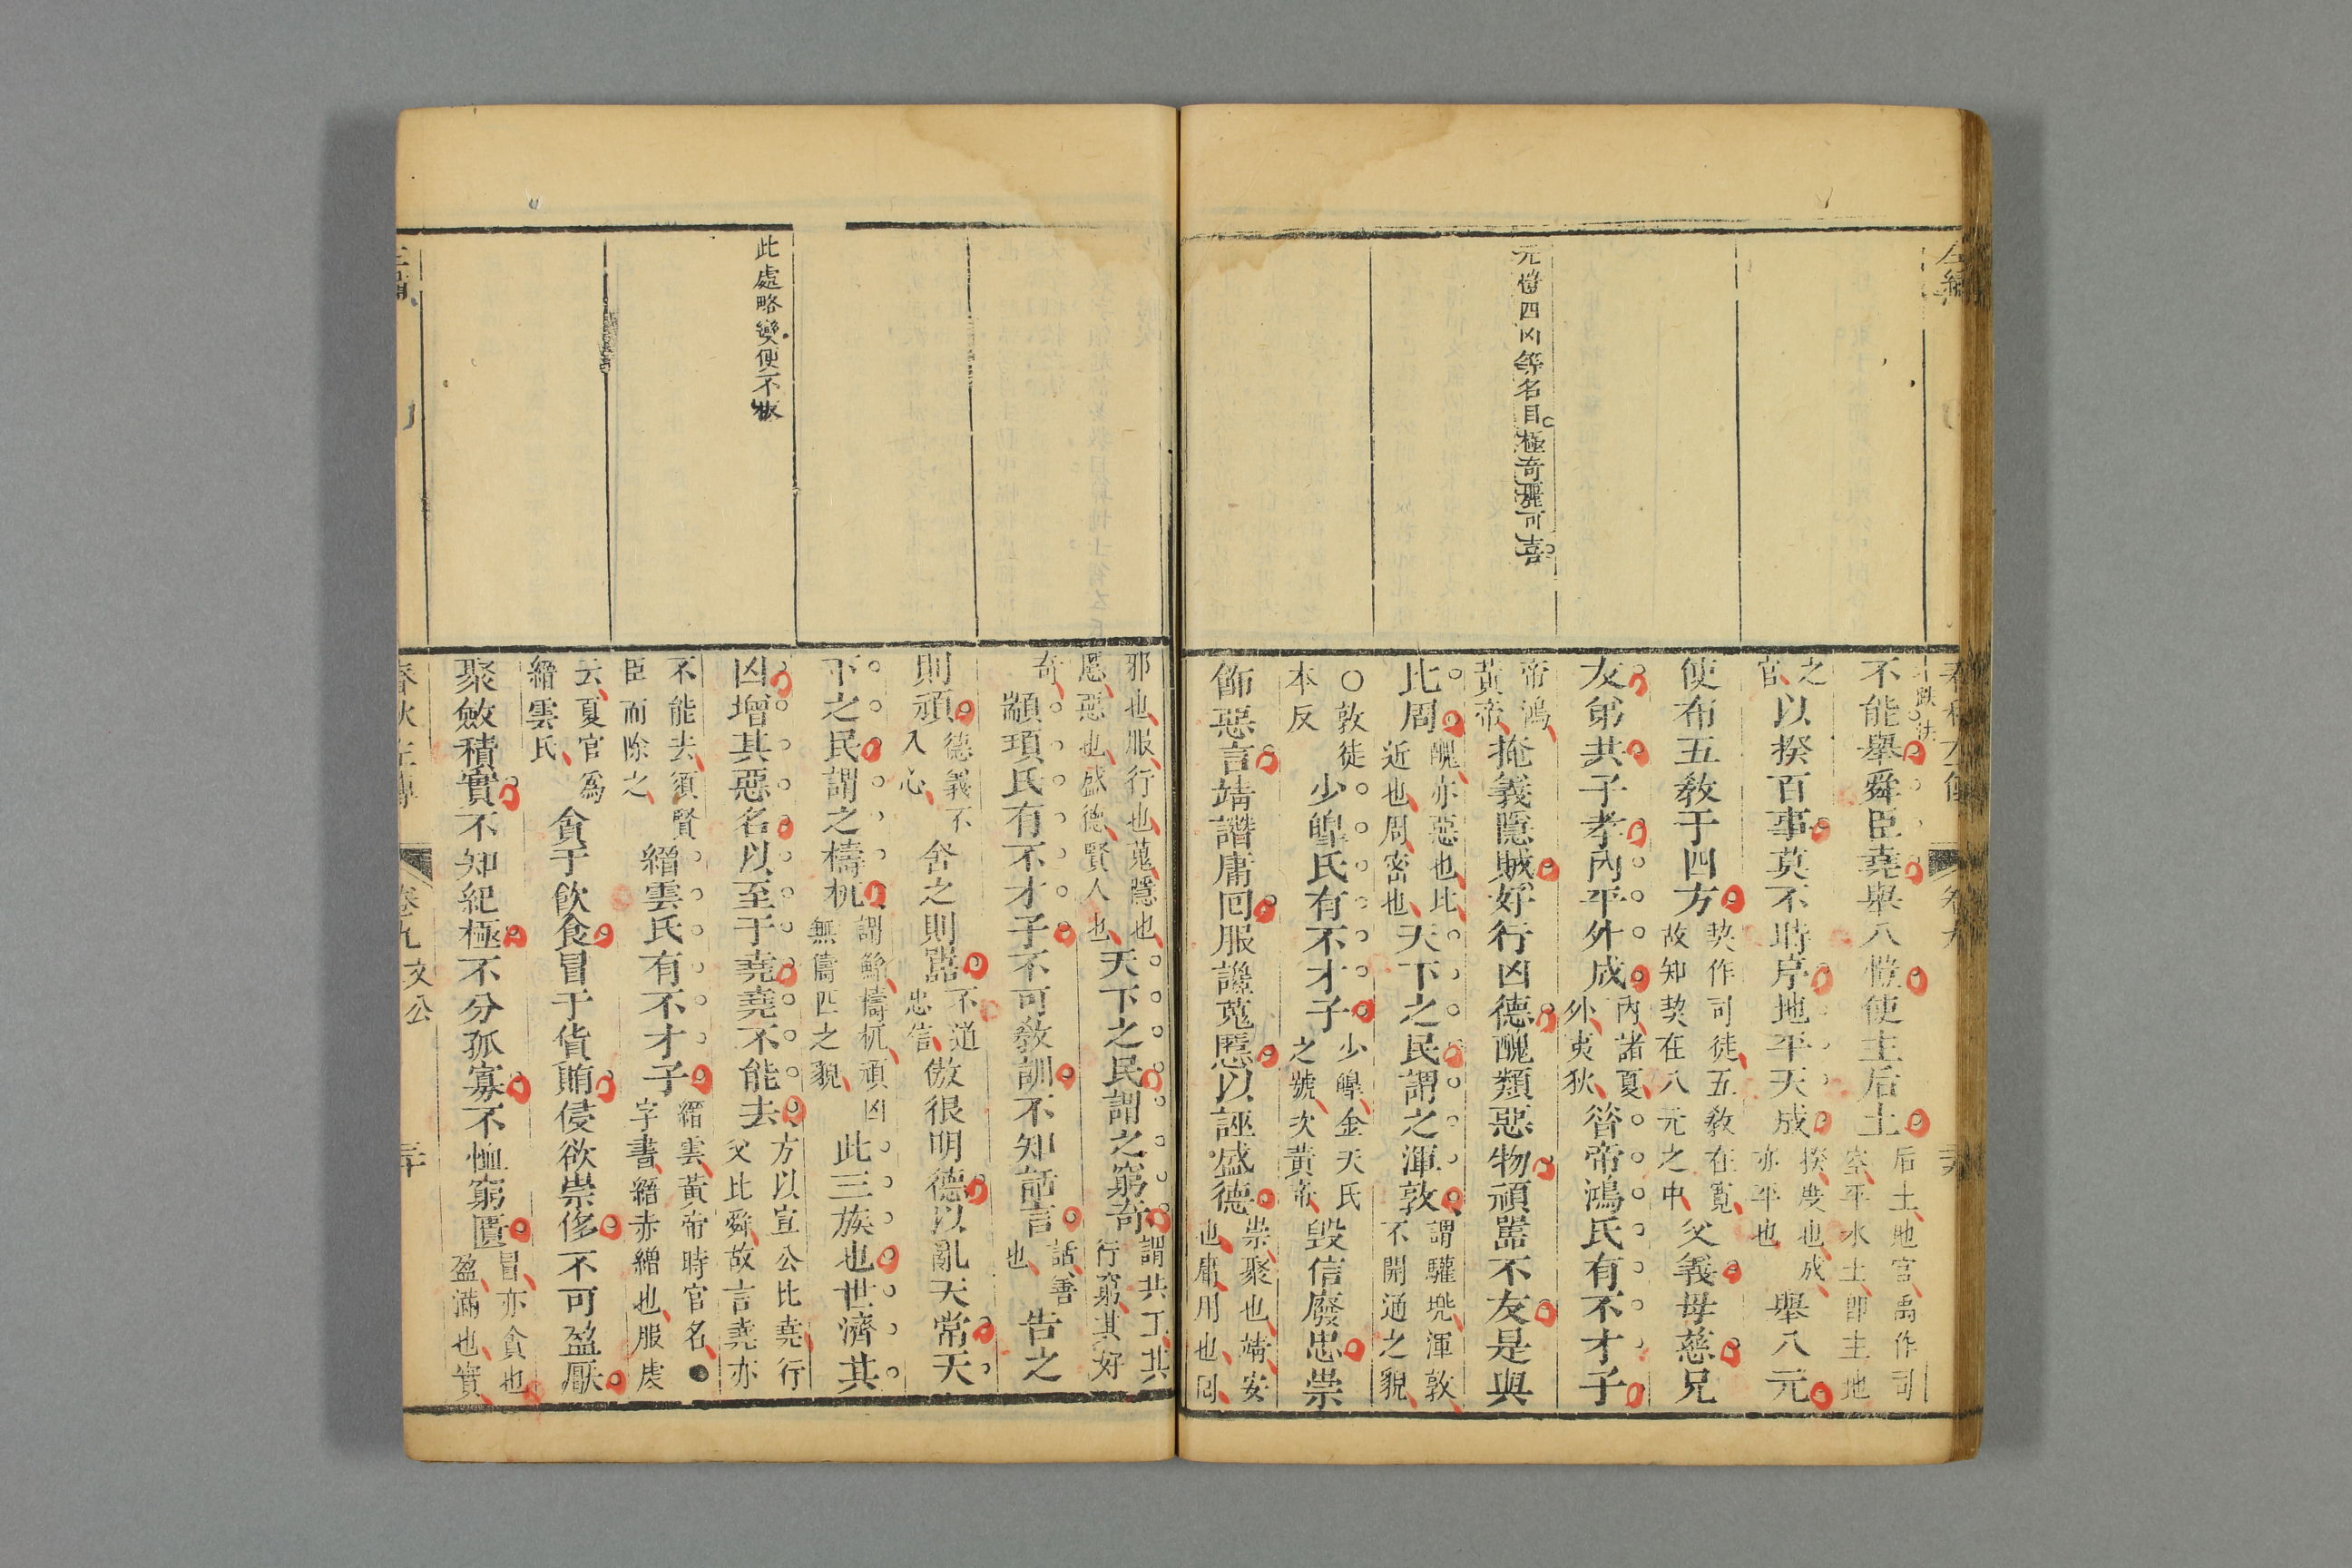 元愷四凶等名目極奇瓌可喜
不能舉舜臣堯舉八愷使主后土后土地官禹作司
空平水土即主地
之
官以揆百事莫不時序地平天成揆度也成
亦平也舉八元
使布五敎于四方契作司徒五敎在寬
故知契在八元之中父義母慈兄
友弟共子孝內平外成內諸夏
外夷狄昝帝鴻氏有不才子
帝鴻
黃帝掩義隱賊好行凶德醜類惡物頑嚚不友是與
比周醜亦惡也比
近也周密也天下之民謂之渾敦謂驩兠渾敦
不開通之貌
○敦徒
本反少皥氏有不才子少皥金天氏
之號次黃帝毀信廢忠崇
飾惡言靖譖庸囘服讒蒐慝以誣盛德崇聚也靖安
也庸用也囘
此處略變便不板
邪也服行也蒐隱也
慝惡也盛德賢人也天下之民謂之窮奇謂共工其
行窮其好
奇顓頊氏有不才子不可敎訓不知話言話善
也告之
則頑德義不
入心舍之則嚚不道
忠信傲很明德以亂天常天
下之民謂之檮杌謂鯀檮杌頑凶
無儔匹之貌此三族也世濟其
凶增其惡名以至于堯堯不能去方以宣公比堯行
父比舜故言堯亦
不能去須賢
臣而除之縉雲氏有不才子縉雲黃帝時官名●
字書縉赤繒也服虔
云夏官爲
縉雲氏貪于飮食冒于貨賄侵欲崇侈不可盈厭
聚斂積實不知紀極不分孤寡不恤窮匱冒亦貪也
盈滿也實
卷九 文公